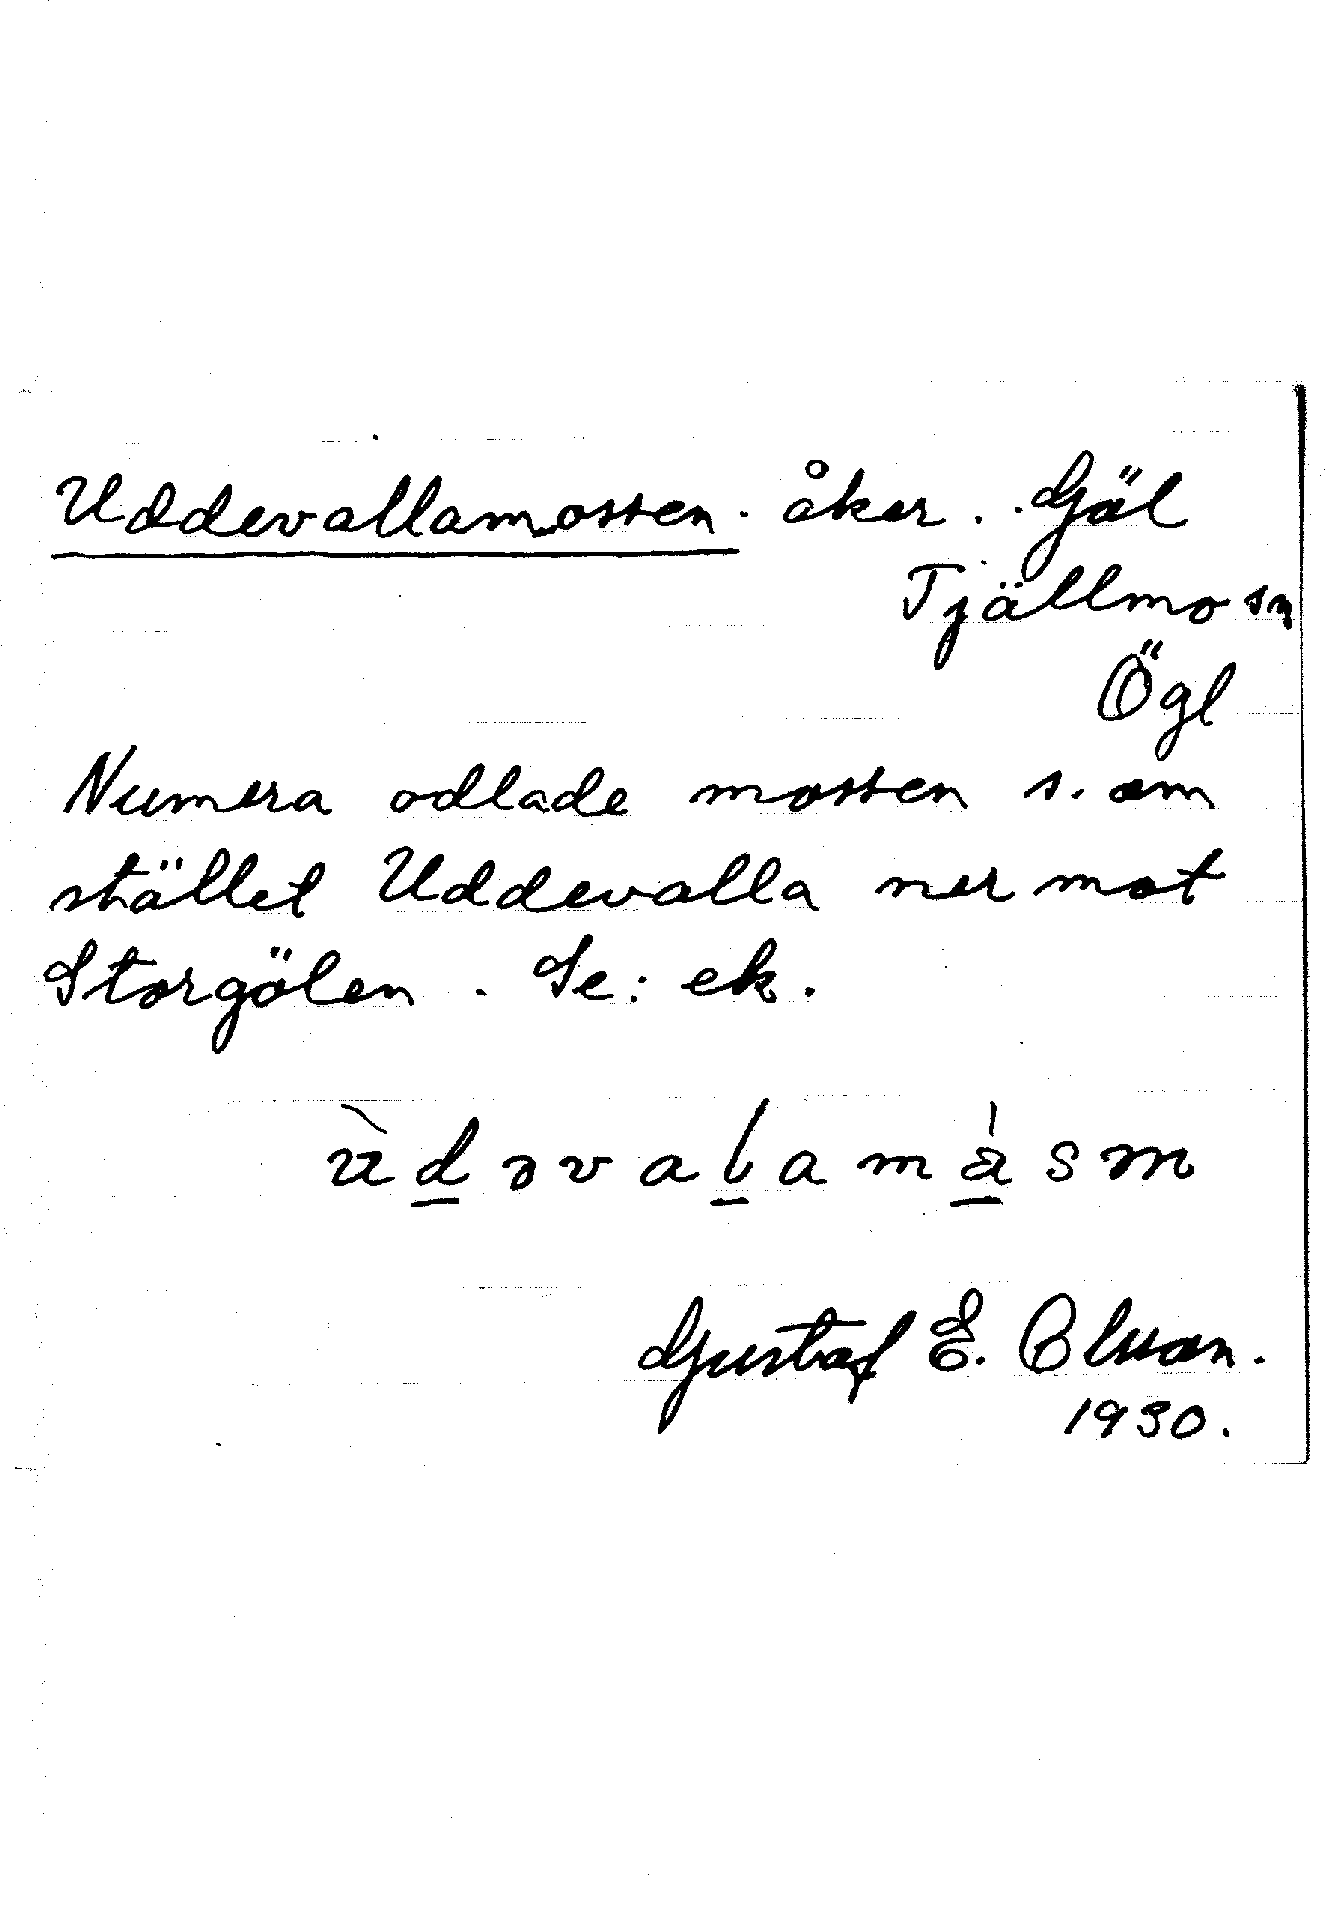 Uddevallamossen. åker. Gjäl
Tjällmo sn
Ögl
Numera odlade mossen s. om
stället Uddevalla ner mot
Storgölen. Se: ek.
ùdəvalamåsm
Gustaf E. Olsson.
1930.